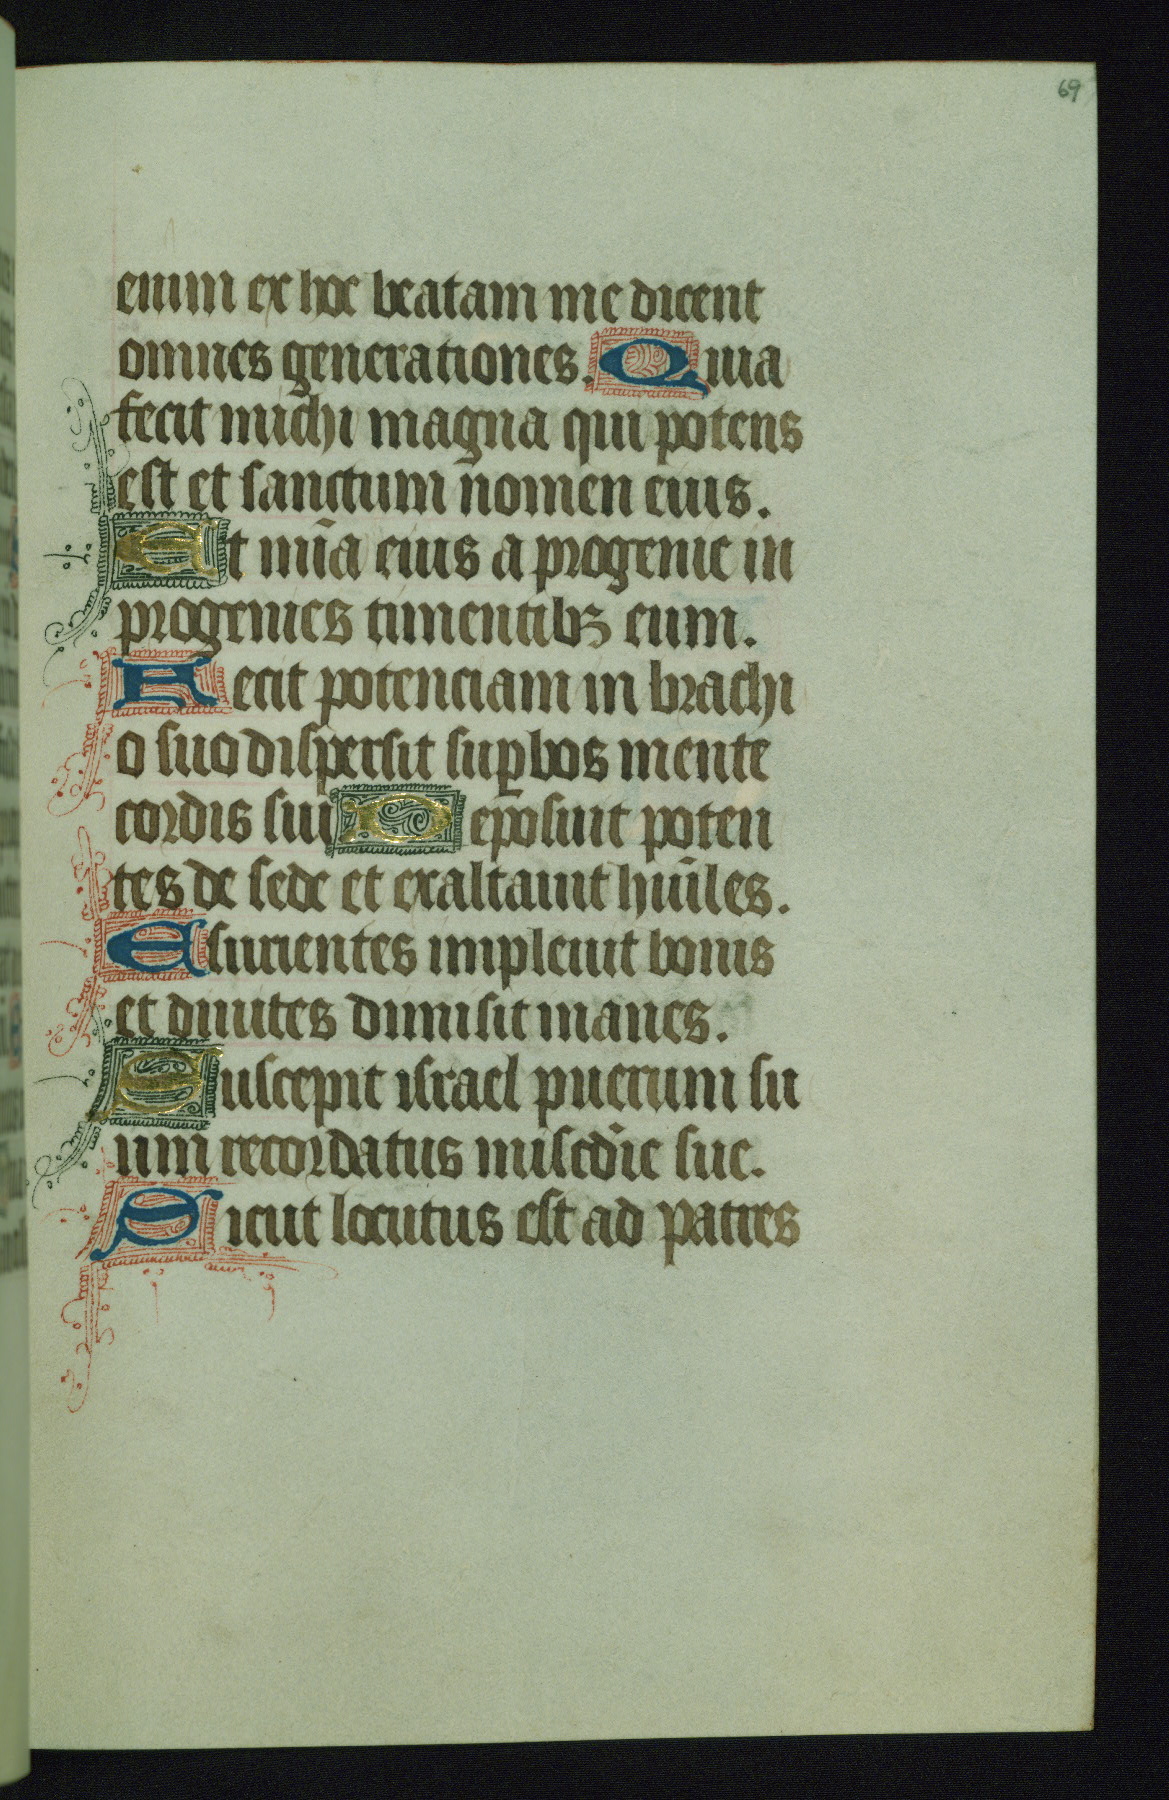 69
enim ex hoc beatam me dicent
omnes generationes. Quia
fecit michi magna qui potens
est et sanctum nomen eius.
Et mīa eius a progenie in
progenies timentibꝫ eum.
Fecit potenciam in brachi
o suo dispersit suꝑbos mente
cordis sui Deposuit poten
tes de sede et exaltauit hūiles.
Esurientes impleuit bonis
et diuites dimisit inanes.
Suscepit israel puerum su
um recordatus miscdīe sue.
Sicut locutus est ad patres